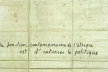 La fonction contemporaine de l'attaque
est d'entamer le politique